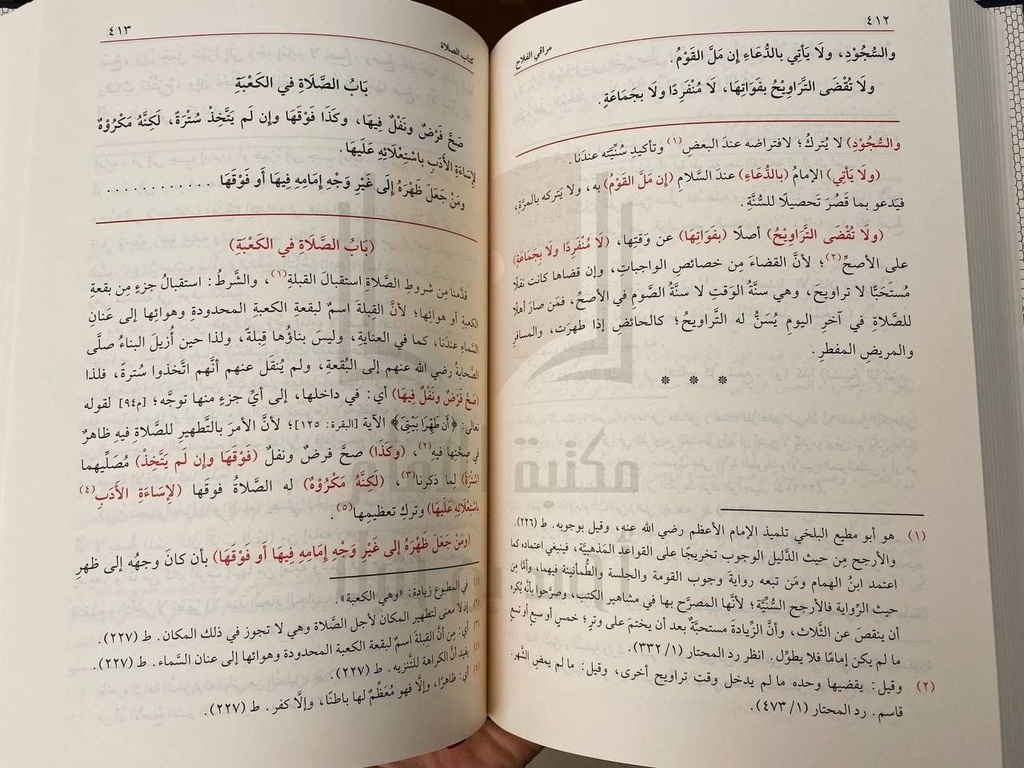 ٤١٢
مراقي الفلاح
والسُّجُوْدِ، ولَا يَأتِي بالدُّعَاءِ إن مَلَّ القَوْمُ.
ولَا تُقْضَى التَّرَاوِيْحُ بفَوَاتِهَا، لَا مُنْفَرِدًا ولَا بجَمَاعَةٍ.
والسُّجُوْدِ) لا يُتركُ؛ لافتراضه عندَ البعضِ(١) وتأكيدِ سُنّيَّته عندَنا.
(ولَا يَأتِي) الإمامُ (بالدُّعَاءِ) عندَ السلامِ (إن مَلَّ القَوْمُ) به، ولا يَتركه بالمرَّةِ،
فيَدعو بما قصُرَ تَحصيلًا للسُّنَّةِ.
(ولَا تُقْضَى التَّرَاوِيْحُ) أصلًا (بفَوَاتِهَا) عن وَقتِها، (لَا مُنْفَرِدًا ولَا بجَمَاعَةٍ)
على الأصحِّ(٢)؛ لأنَّ القضاءَ مِن خصائصِ الواجباتِ، وإن قضاها كانت نفلًا
مُستَحَبًّا لا تراويحَ، وهي سنَّةُ الوَقتِ لا سنَّةُ الصَّومِ في الأصحِّ، فمَن صارَ أهلًا
للصَّلاةِ في آخرِ اليومِ يُسَنُّ له التَّراويحُ؛ كالحائضِ إذا طهرَت، والمسافرِ
والمريضِ المفطرِ.
* * *
(١) هو أبو مطيع البلخي تلميذ الإمام الأعظم رضي الله عنه، وقيل بوجوبه. ط (٢٢٦).
والأرجح مِن حيث الدَّليل الوجوب تخريجًا على القواعد المَذهبيَّة، فينبغي اعتماده كما
اعتمد ابنُ الهمام ومَن تبعه روايةَ وجوب القومة والجلسة والطُّمأنينة فيهما، وأمَّا مِن
حيث الرِّواية فالأرجح السُّنِّيَّة؛ لأنَّها المصرَّح بها في مشاهير الكتب، وصرَّحوا بأنَّه يُكره
أن ينقصَ عن الثَّلاث، وأنَّ الزِّيادةَ مستحبَّةٌ بعد أن يختمَ على وترٍ؛ خمسٍ أو سبعٍ أو تسعٍ
ما لم يكن إمامًا فلا يطوِّل. انظر رد المحتار (١/ ٣٣٢).
(٢) وقيل: يقضيها وحده ما لم يدخل وقت تراويح أخرى، وقيل: ما لم يمضِ الشَّهر.
قاسم. رد المحتار (١/ ٤٧٣).
٤١٣
كتاب الصلاة
بَابُ الصَّلَاةِ في الكَعْبَةِ
صَحَّ فَرْضٌ ونَفْلٌ فِيهَا، وكَذَا فَوْقَهَا وإن لَم يَتَّخِذْ سُتْرَةً، لَكِنَّهُ مَكْرُوْهٌ
لِإسَاءَةِ الأَدَبِ باسْتِعْلَائِهِ عَلَيهَا.
ومَنْ جَعَلَ ظَهْرَهُ إلى غَيْرِ وَجْهِ إمَامِهِ فِيهَا أو فَوْقَهَا ............
(بَابُ الصَّلَاةِ في الكَعْبَةِ)
قدَّمنا مِن شروطِ الصَّلاةِ استقبالَ القبلةِ(١)، والشَّرطُ: استقبالُ جزءٍ مِن بقعةِ
الكعبةِ أو هوائِها؛ لأنَّ القبلةَ اسمٌ لبقعةِ الكعبةِ المحدودةِ وهوائِها إلى عَنانِ
السَّماءِ عندَنا، كما في العنايةِ، وليسَ بناؤُها قبلةً، ولذا حين أُزيلَ البناءُ صلَّى
الصَّحابةُ رضي الله عنهم إلى البُقعةِ، ولم يُنقَل عنهم أنَّهم اتَّخذوا سُترةً، فلذا
(صَحَّ فَرْضٌ ونَفْلٌ فِيهَا) أي: في داخلها، إلى أيِّ جزءٍ منها توجَّه؛ [م٩٤] لقوله
تعالى: ﴿أَن طَهِّرَا بَيْتِيَ﴾ الآية [البقرة: ١٢٥]؛ لأنَّ الأمرَ بالتَّطهيرِ للصَّلاةِ فيه ظاهرٌ
في صِحَّتِها فيهِ(٢)، (وكَذَا) صحَّ فرضٌ ونفلٌ (فَوْقَهَا وإن لَم يَتَّخِذْ) مُصَلِّيهما
(سُتْرَةً) لِما ذكرنا(٣)، (لَكِنَّهُ مَكْرُوْهٌ) له الصَّلاةُ فوقَها (لِإسَاءَةِ الأَدَبِ(٤)
باسْتِعْلَائِهِ عَلَيهَا) وتركِ تعظيمِها(٥).
(ومَنْ جَعَلَ ظَهْرَهُ إلى غَيْرِ وَجْهِ إمَامِهِ فِيهَا أو فَوْقَهَا) بأن كانَ وجهُه إلى ظهرِ
(١) في المطبوع زيادة: «وهي الكعبة».
(٢) إذ لا معنى لتطهير المكان لأجل الصَّلاة وهي لا تجوز في ذلك المكان. ط (٢٢٧).
(٣) أي: مِن أنَّ القبلة اسمٌ لبقعة الكعبة المحدودة وهوائها إلى عنان السَّماء. ط (٢٢٧).
(٤) يفيد أنَّ الكراهة للتَّنزيه. ط (٢٢٧).
(٥) أي: ظاهرًا، وإلَّا فهو مُعظِّمٌ لها باطنًا، وإلَّا كفر. ط (٢٢٧).
مكتبة